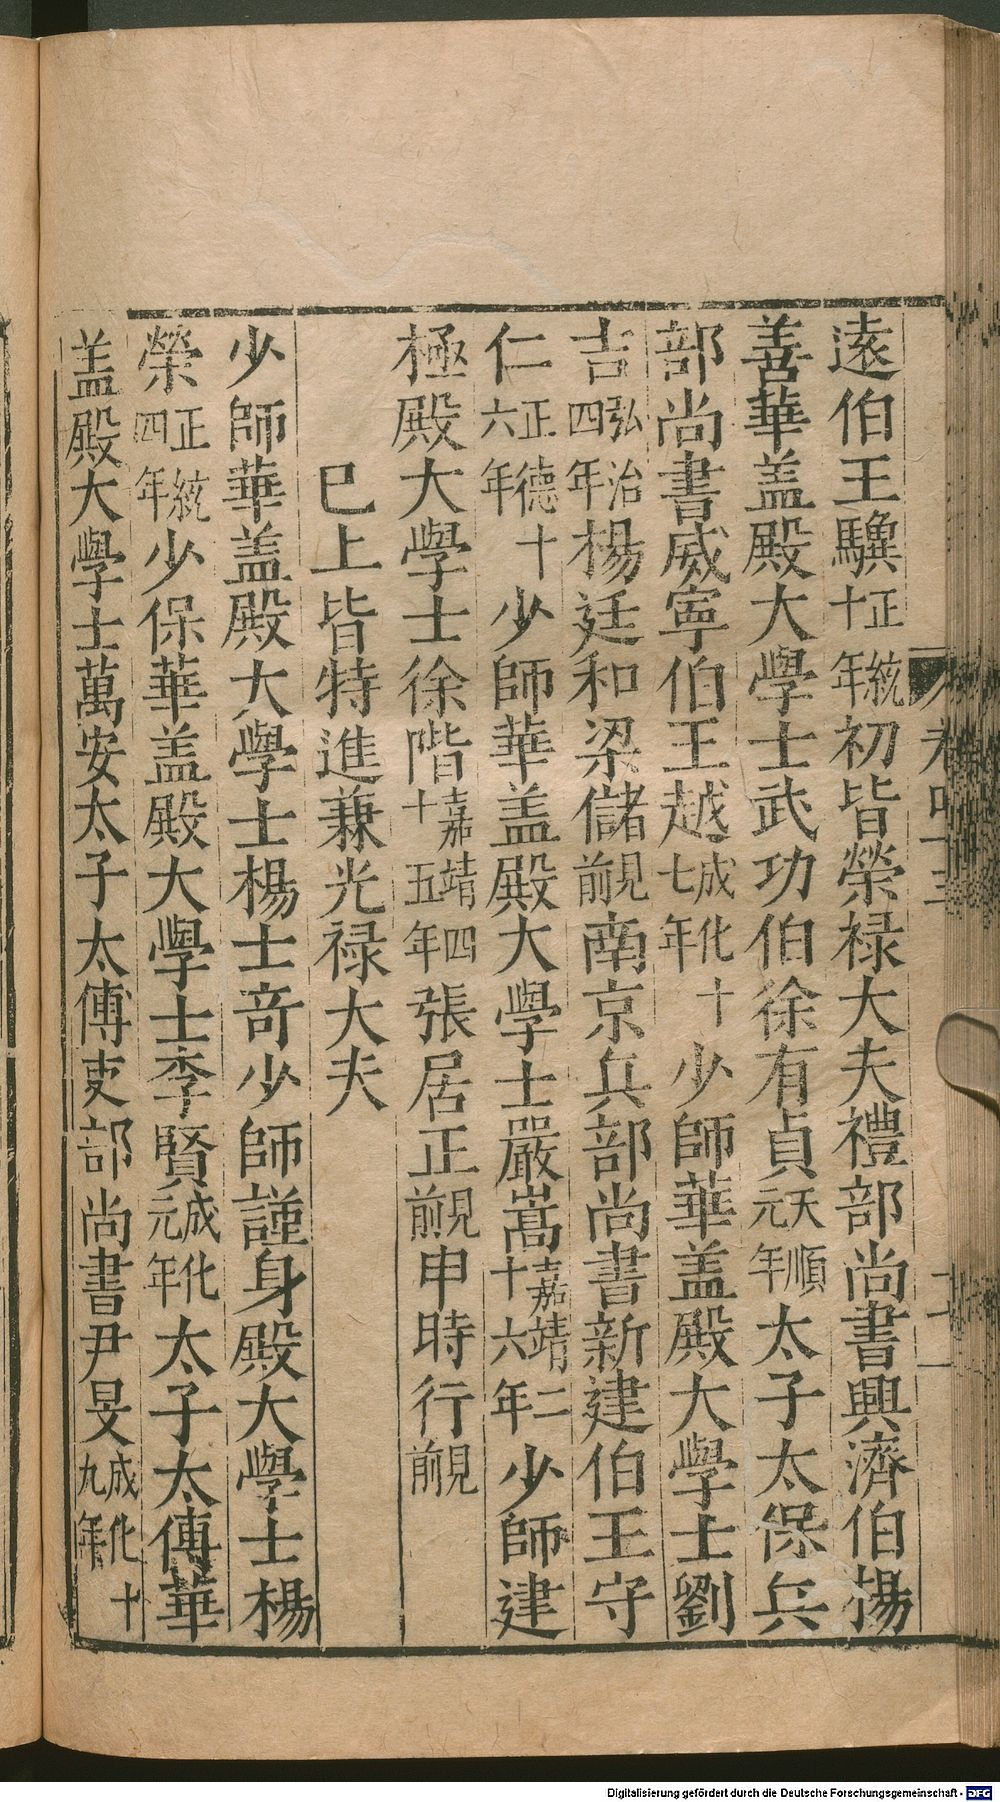 逺伯王驥正統十年初皆榮禄大夫禮部尚書興濟伯楊
善華盖殿大學士武功伯徐有貞天順元年太子太保兵
部尚書威寧伯王越成化十七年少師華盖殿大學士劉
吉弘治四年楊廷和梁儲見前南京兵部尚書新建伯王守
仁正德十六年少師華盖殿大學士嚴嵩嘉靖二十六年少師建
極殿大學士徐階嘉靖四十五年張居正見前申時行見前
已上皆特進兼光禄大夫
少師華盖殿大學士楊士竒少師謹身殿大學士楊
榮正統四年少保華盖殿大學士李賢成化元年太子太傅華
盖殿大學士萬安太子太傅吏部尚書尹旻成化十九年
Digitalisierung gefördert durch die Deutsche Forschungsgemeinschaft - DFG